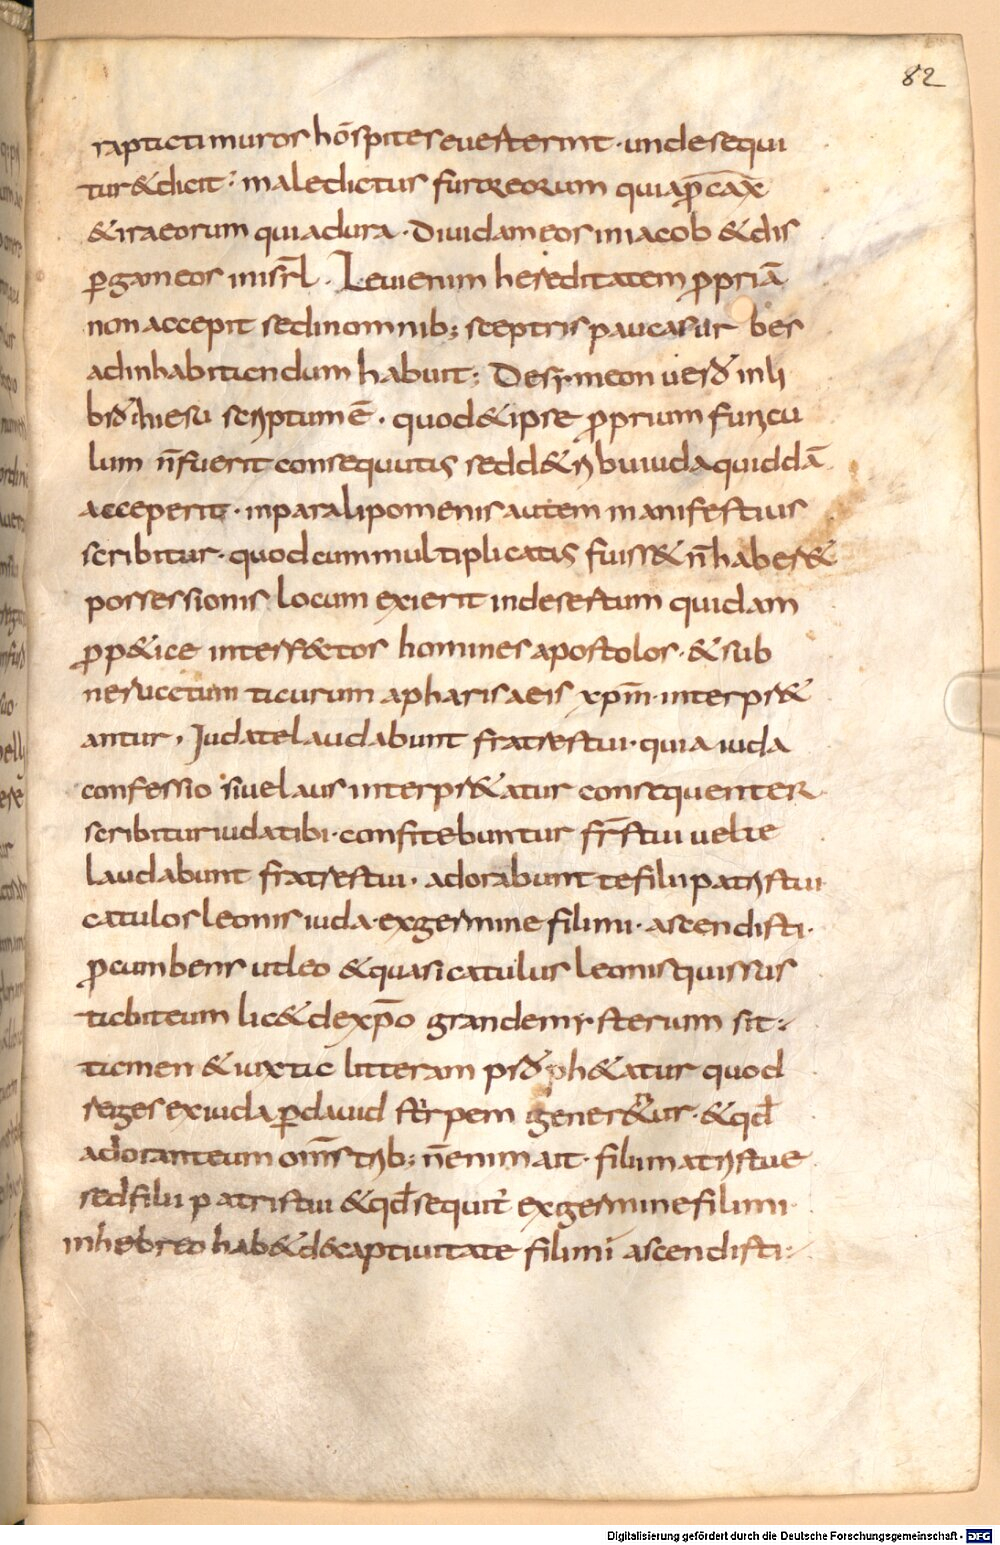 82
rapta ciui muros hōspites euerterint · unde sequi
tur & dicit : maledictus furor eorum quia p̄cax
& ira eorum quia dura · Diuidam eos in iacob & dis
ꝑgam eos in isr̄l · Leui enim hereditatem ꝓpriā
non accepit sed in omnib; sceptris paucas urbes
ad inhabitandum habuit ; De symeon uero in li
bro ihesu scriptum ē · quod & ipse ꝓprium funicu
lum n̄ fuerit consequutus sed de tribu iuda quiddā
acceperit · in paralipomenis autem manifestius
scribitur · quod cum multiplicatus fuiss& n̄ haber&
possessionis locum exierit in desertum quidam
ꝓph&ice interfectos homines apostolos · & sub
neruatum taurum a pharisaeis xp̄m · interpr&
antur , Iuda te laudabunt fratres tui · quia iuda
confessio siue laus interpr&atur consequenter
scribitur iuda tibi · confitebuntur fr̄s tui uel te
laudabunt fratres tui · adorabunt te filii patris tui
catulos leonis iuda · ex germine fili mi · ascendisti ·
ꝓcumbens ut leo & quasi catulus leonis quis sus
citabit eum lic& de xp̄o grande mysterum sit :
tamen & iuxta litteram proph&atur quod
reges ex iuda ꝑ dauid stirpem gener&ur · & qd̄
adorant eum om̄s trib; n̄ enim ait · filii matris tue
sed filii patris tui & qd̄ sequit̄ ex germine fili mi
in hebreo hab& de captiuitate fili mi ascendisti :
Digitalisierung gefördert durch die Deutsche Forschungsgemeinschaft - DFG